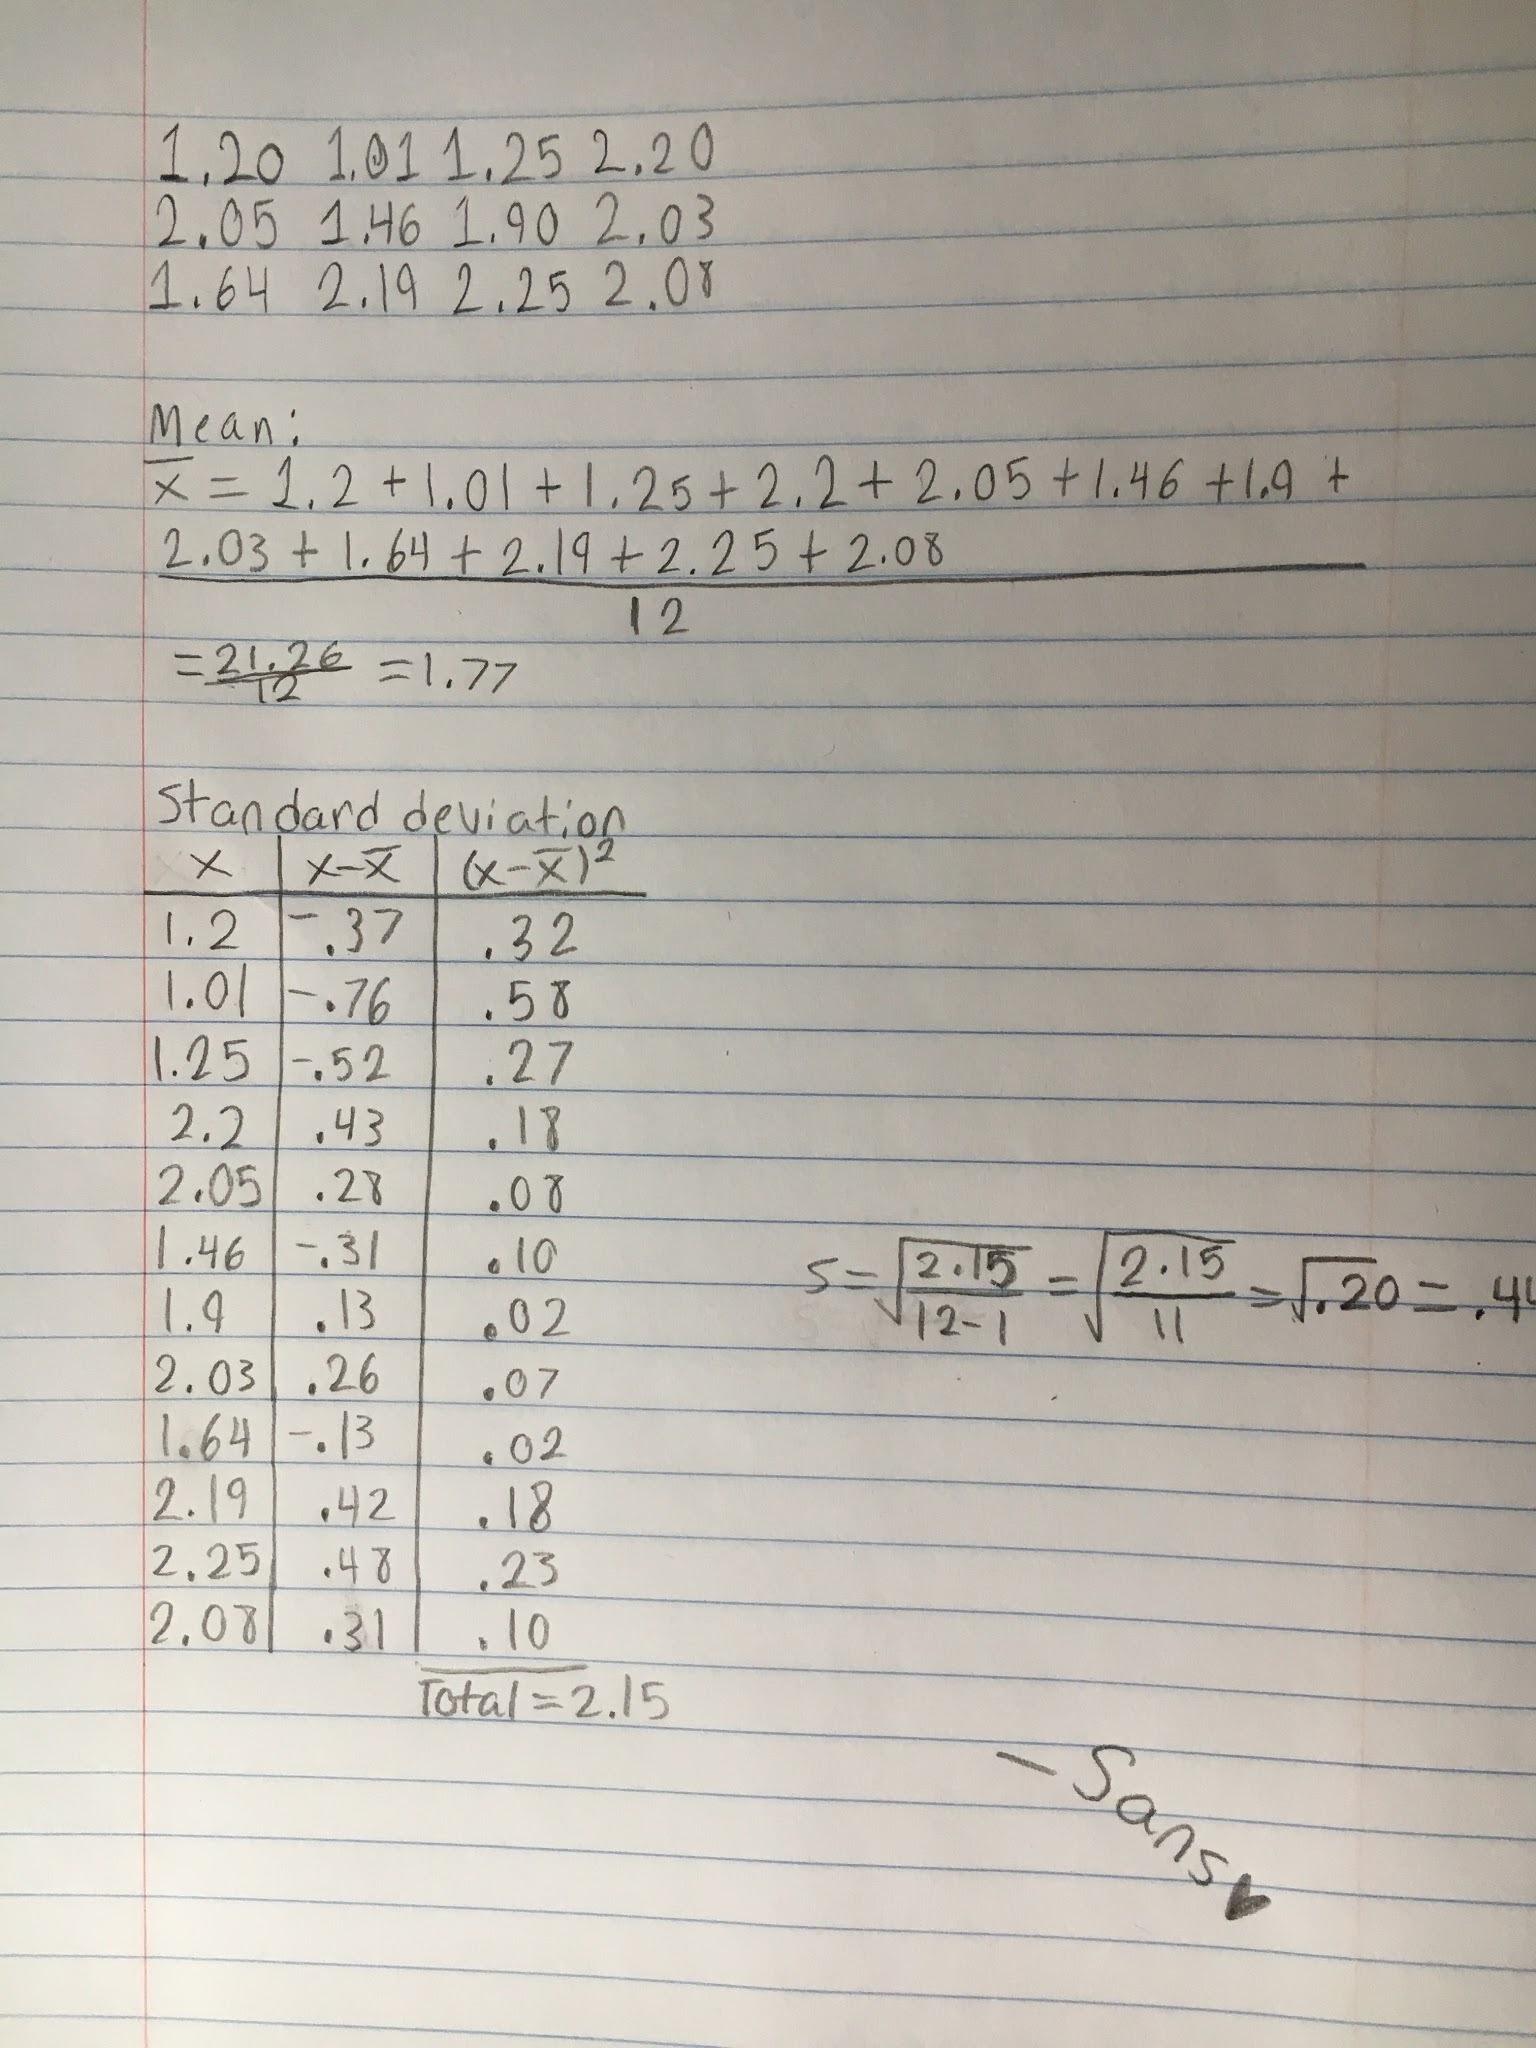 1.20 1.01 1.25 2.20
2.05 1.46 1.90 2.03
1.64 2.19 2.25 2.08
Mean:
x̄ = 1.2 + 1.01 + 1.25 + 2.2 + 2.05 + 1.46 + 1.9 +
2.03 + 1.64 + 2.19 + 2.25 + 2.08
12
= 21.26/12 = 1.77
Standard deviation
x x-x̄ (x-x̄)²
1.2 -.37 .32
1.01 -.76 .58
1.25 -.52 .27
2.2 .43 .18
2.05 .28 .08
1.46 -.31 .10
1.9 .13 .02
2.03 .26 .07
1.64 -.13 .02
2.19 .42 .18
2.25 .48 .23
2.08 .31 .10
Total = 2.15
s = √(2.15/12-1) = √(2.15/11) = √.20 = .44
- Sans ♥